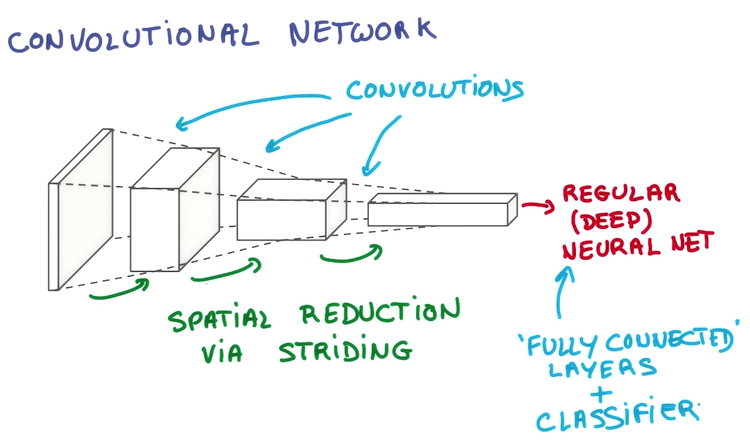 CONVOLUTIONAL NETWORK
CONVOLUTIONS
REGULAR
(DEEP)
NEURAL NET
SPATIAL REDUCTION
VIA STRIDING
'FULLY CONNECTED'
LAYERS
+
CLASSIFIER.